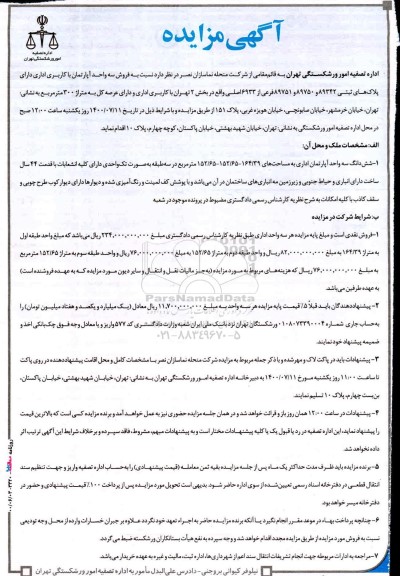 آگهی مزایده
اداره تصفیه
امور ورشکستگی تهران
اداره تصفیه امور ورشکستگی تهران به قائم‌مقامی از شرکت منحله نماسازان نصر در نظر دارد نسبت به فروش سه واحد آپارتمان با کاربری اداری دارای
پلاک‌های ثبتی ۸۹۳۴۲ و ۸۹۷۵۰ و ۸۹۷۵۱ فرعی از ۶۹۳۳ اصلی واقع در بخش ۲ تهران با کاربری اداری و دارای عرصه کل به متراژ ۳۰۰ مترمربع به نشانی:
تهران، خیابان خرمشهر، خیابان صابونچی، خیابان هویزه غربی، پلاک ۱۵۱ از طریق مزایده و با شرایط ذیل در تاریخ ۱۴۰۰/۰۷/۱۱ روز یکشنبه ساعت ۱۲:۰۰ صبح
در محل اداره تصفیه امور ورشکستگی به نشانی تهران، خیابان شهید بهشتی، خیابان پاکستان، کوچه چهارم، پلاک ۱۰ اقدام نماید.
الف: مشخصات ملک و محل آن:
۱-شش‌دانگ سه واحد آپارتمان اداری به مساحت‌های ۱۶۴/۳۹-۱۵۲/۶۵-۱۵۲/۶۵ مترمربع در سه طبقه به صورت تک‌واحدی دارای کلیه انشعابات با قدمت ۴۴ سال
ساخت دارای انباری و حیاط جنوبی و زیرزمین مه انباری‌های ساختمان در آن می‌باشد و با پوشش کف لمینت و رنگ‌آمیزی شده و دیوارها دارای دیوارکوب طرح چوبی و
سقف کاذب با کلیه امکانات به شرح نظریه کارشناس رسمی دادگستری مضبوط در پرونده موجود در شعبه
ب: شرایط شرکت در مزایده
۱-فروش نقدی است و مبلغ پایه مزایده هر سه واحد اداری طبق نظریه کارشناس رسمی دادگستری مبلغ ۲۳۴,۰۰۰,۰۰۰,۰۰۰ ریال می‌باشد که مبلغ واحد طبقه اول
به متراژ ۱۶۴/۳۹ به مبلغ ۸۲,۰۰۰,۰۰۰,۰۰۰ ریال و واحد طبقه دوم به متراژ ۱۵۲/۶۵ به مبلغ ۷۶,۰۰۰,۰۰۰,۰۰۰ ریال و واحد طبقه سوم به متراژ ۱۵۲/۶۵ مترمربع
به مبلغ ۷۶,۰۰۰,۰۰۰,۰۰۰ ریال که هزینه‌های مربوط به مورد مزایده (به جز مالیات نقل و انتقال و سایر دیون مورد مزایده که به عهده فروشنده است)
به عهده طرفین می‌باشد.
۲- پیشنهاددهندگان باید قبلاً ۵٪ قیمت پایه مزایده هر سه واحد به مبلغ ۱۱,۷۰۰,۰۰۰,۰۰۰ ریال معادل (یک میلیارد و یکصد و هفتاد میلیون تومان) را
به حساب جاری شماره ۰۱۰۸۰۷۳۳۹۰۰۰۴ ورشکستگان تهران نزد بانک ملی ایران شعبه وزارت دادگستری کد ۵۷۷ واریز و یا معادل وجه فوق چک بانکی اخذ و
ضمیمه پیشنهاد خود نمایند.
۳- پیشنهادات باید در پاکت لاک و مهر شده و با ذکر جمله مربوط به مزایده شرکت منحله نماسازان نصر با مشخصات کامل و محل اقامت پیشنهاددهنده در روی پاکت
تا ساعت ۱۱:۰۰ روز یکشنبه مورخ ۱۴۰۰/۰۷/۱۱ به دبیرخانه اداره تصفیه امور ورشکستگی تهران به نشانی: تهران، خیابان شهید بهشتی، خیابان پاکستان،
بن‌بست چهارم، پلاک ۱۰ تسلیم نمایند.
۴- پیشنهادات در ساعت ۱۲:۰۰ همان روز باز و قرائت خواهد شد و در همان جلسه مزایده حضوری نیز به عمل خواهد آمد و برنده مزایده کسی است که بالاترین قیمت
را پیشنهاد نماید، این اداره تصفیه در رد یا قبول یک یا کلیه پیشنهادات مختار است و به پیشنهادات مبهم، مشروط، فاقد سپرده و برخلاف شرایط این آگهی ترتیب اثر
داده نخواهد شد.
۵- برنده مزایده باید ظرف مدت حداکثر یک ماه پس از جلسه مزایده بقیه ثمن معامله (قیمت پیشنهادی) را به حساب اداره تصفیه واریز و جهت تنظیم سند
انتقال قطعی در دفترخانه اسناد رسمی تعیین‌شده از سوی اداره حاضر شود. بدیهی است تحویل مورد مزایده پس از پرداخت ۱۰۰٪ قیمت پیشنهادی و حضور در
دفترخانه میسر خواهد بود.
۶- چنانچه پرداخت بهاء در موعد مقرر انجام نگیرد یا آنکه برنده مزایده حاضر به اجراء تعهد خود نگردد علاوه بر جبران خسارات وارده از محل وجه تودیعی
نسبت به فروش مورد از طریق مزایده مجدد اقدام خواهد شد و وجه سپرده به نفع هیأت بستانکاران ورشکسته ضبط می گردد.
۷- مراجعه به ادارات مربوطه جهت انجام تشریفات انتقال سند اعم از شهرداری‌ها، اداره ثبت، مالیت و غیره به عهده خریدار می‌باشد.
نیلوفر کیوانی بروجنی- دادرس علی‌البدل مأمور به اداره تصفیه امور ورشکستگی تهران
ParsNamadData
۰۲۱-۸۸۳۴۹۶۷۰-۵